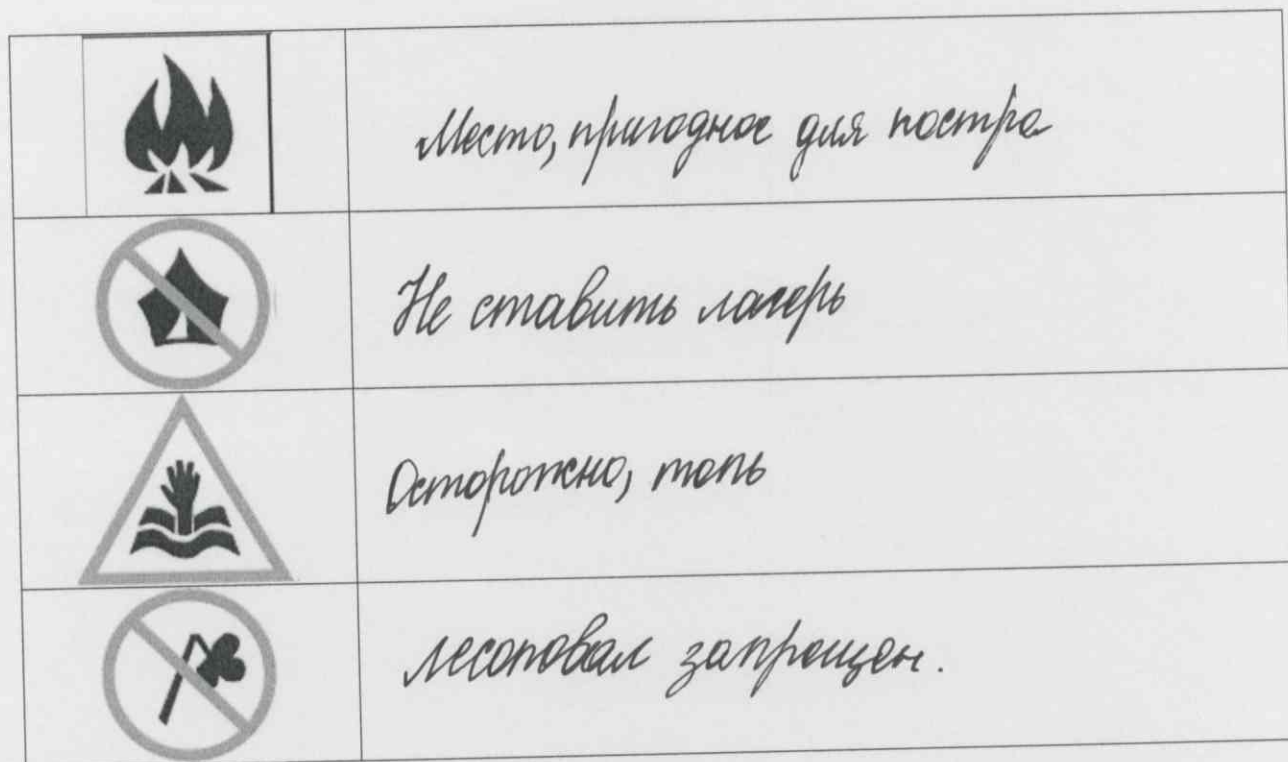 Место, пригодное для костра
Не ставить лагерь
Осторожно, топь
лесоповал запрещен.